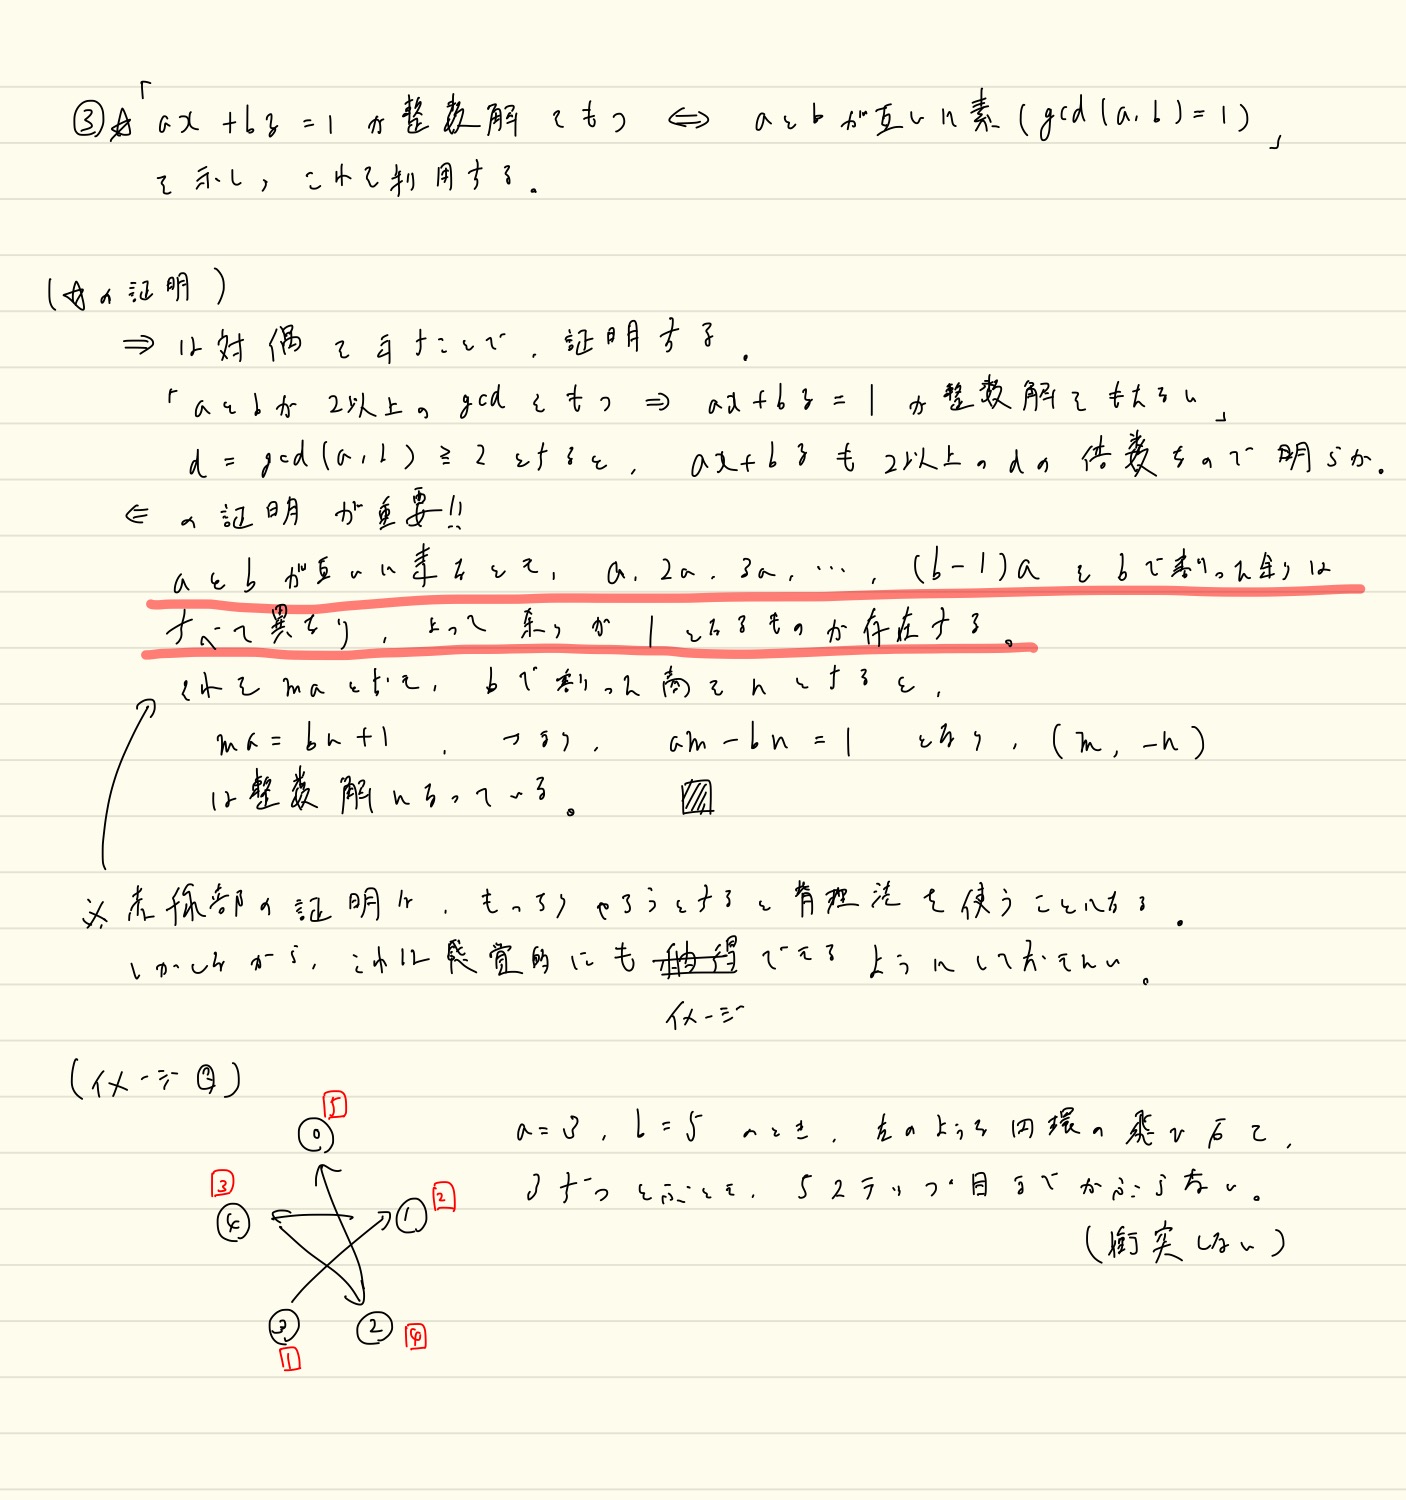 ③☆「ax+by=1が整数解をもつ ⇔ aとbが互いに素(gcd(a,b)=1)」
を示し,これを利用する。
(☆の証明)
⇒は対偶を示すことで,証明する.
「aとbが2以上のgcdをもつ ⇒ ax+by=1が整数解をもたない」
d=gcd(a,b)≧2とすると,ax+byも2以上のdの倍数なので明らか.
⇐の証明が重要!!
aとbが互いに素なとき,a,2a,3a,…,(b-1)aをbで割った余りは
すべて異なり,よって余りが1となるものが存在する。
それをmaとおき,bで割った商をnとすると,
ma=bn+1,つまり,am-bn=1となり,(m,-n)
は整数解になっている。
※赤線部の証明は,もっちりやろうとすると背理法を使うことになる.
しかしながら,これは感覚的にもできるようにしておきたい。
イメージ
(イメージ図)
5
0
3
4
1
2
3
1
2
4
a=3,b=5のとき,左のような円環の飛び石で,
3ずつとぶとき,5ステップ目までかぶらない。
(衝突しない)